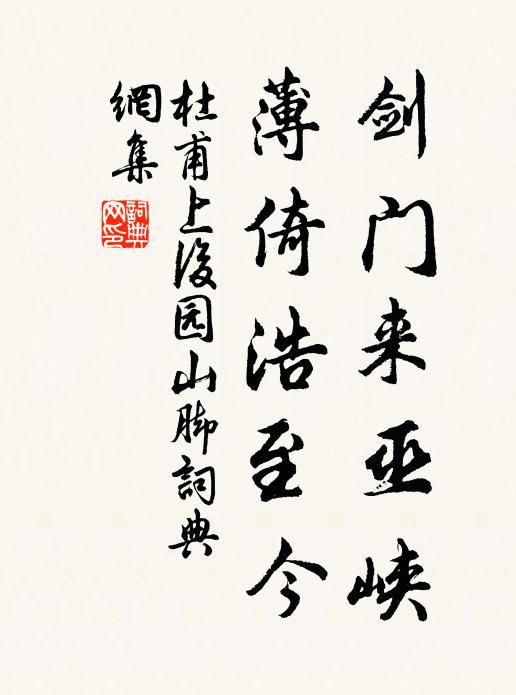 剑门来巫峡
薄倚浩至今
杜甫上後园山脚詞典
網集
詞典
网印